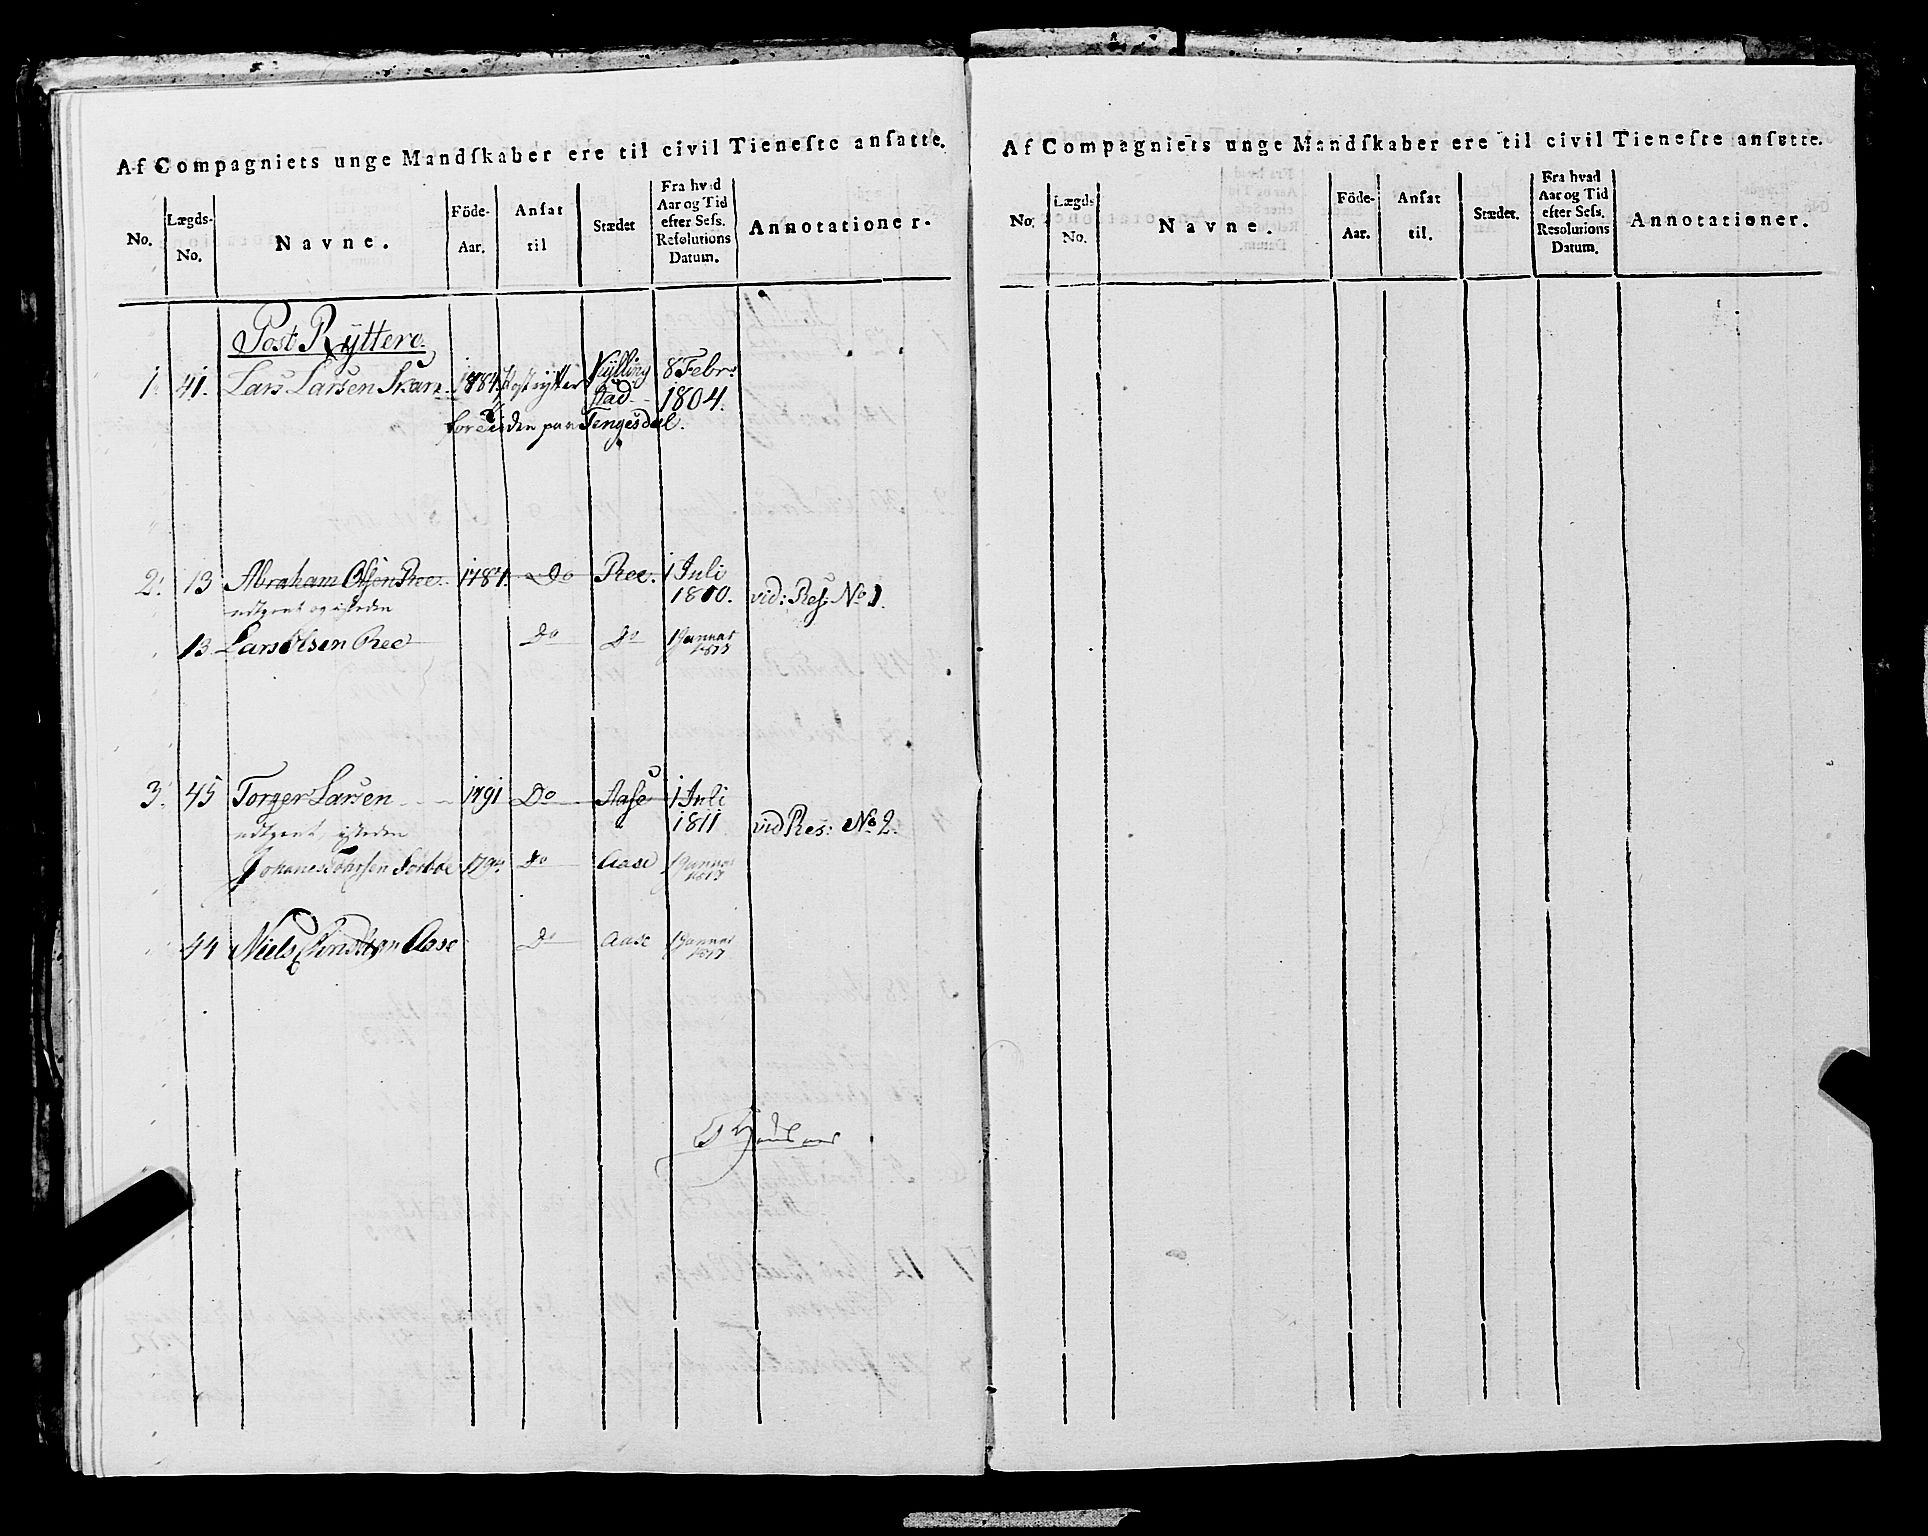 Af Compagniets unge Mandſkaber ere til civil Tieneſte anſatte.
No. Lægds-No. Navne. Föde-Aar. Anſat til Stædet Fra hvad Aar og Tid efter Seſs. Reſolutions Datum. Annotationer.
Post Ryttere.
1. 41. Lars Larsen Skan 1784 Postrytter Kylling stad 8 Febr. 1804.
for Tiden paa Tengesdal.
2. 13 Abraham Olsen Ree 1787. Do Ree. 1 Juli 1810. vid: Res: No 1.
udtient og isteden
13 Lars Olsen Ree Do Do 1 Januar 1817
3. 45 Torger Larsen 1791 Do Aase 1 Juli 1811 vid Res: No 2.
udtient isteden
Johanes 1794 Do Aase 1 Januar 1817
44 Niels Christian Aase Do Aase 1 Januar 1817
Af Compagniets unge Mandſkaber ere til civil Tieneſte anſatte.
No. Lægds No. Navne. Föde-Aar. Anſat til. Stædet. Fra hvad Aar og Tid efter Seſs. Resolutions Datum. Annotationer.